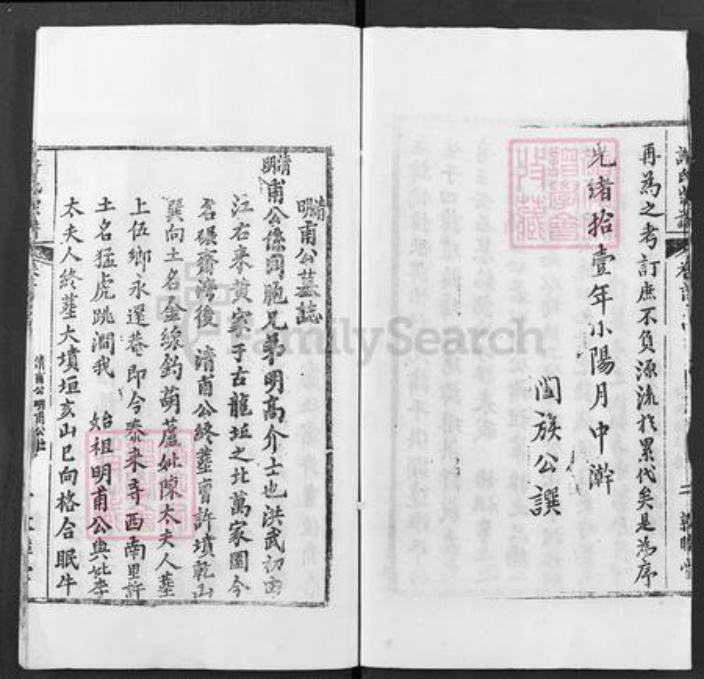 再為之考訂庶不負源流於累代矣是為序
光緒拾壹年小陽月中澣
闔族公譔
清
明甫公墓誌
清
明甫公係同胞兄弟明高介士也洪武初由
江右來黃家于古龍坵之北萬家園今
名碾齋灣後 清甫公終塟曹許墳乾山
巽向土名金線釣葫蘆妣陳太夫人塟
上伍鄉永還菴即今泰來寺西南里許
土名猛虎跳澗我 始祖明甫公與妣李
太夫人終塟大墳垣亥山巳向格合眠牛
清甫公 明甫公
FamilySearch